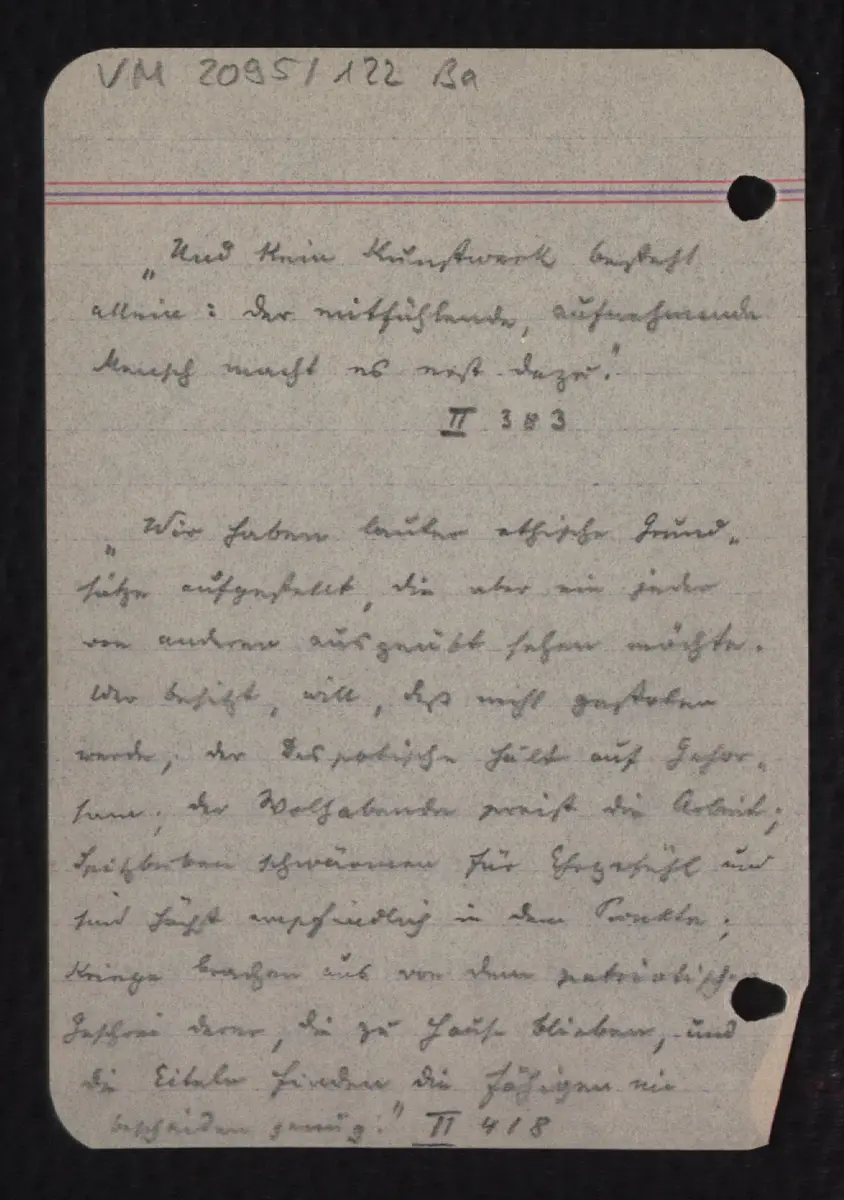 VM 2095/122 Ba
„Und kein Kunstwerk besteht
allein: der mitfühlende, aufnehmende
Mensch macht es erst dazu.“
II 383
„Wir haben lauter ethische Grund„
sätze aufgestellt, die aber ein jeder
von anderen ausgeübt sehen möchte.
Wer besitzt, will, daß nicht gestolen
werde; der Despotische hält auf Gehor„
sam; der Wolhabende preist die Arbeit;
Spitzbuben schwärmen für Ehrgefühl und
sind höchst empfindlich in dem Punkte;
Kriege brachen aus von dem patriotischen
Geschrei derer, die zu Hause blieben, und
die Eiteln finden die Fähigen nie
bescheiden genug.“ II 418